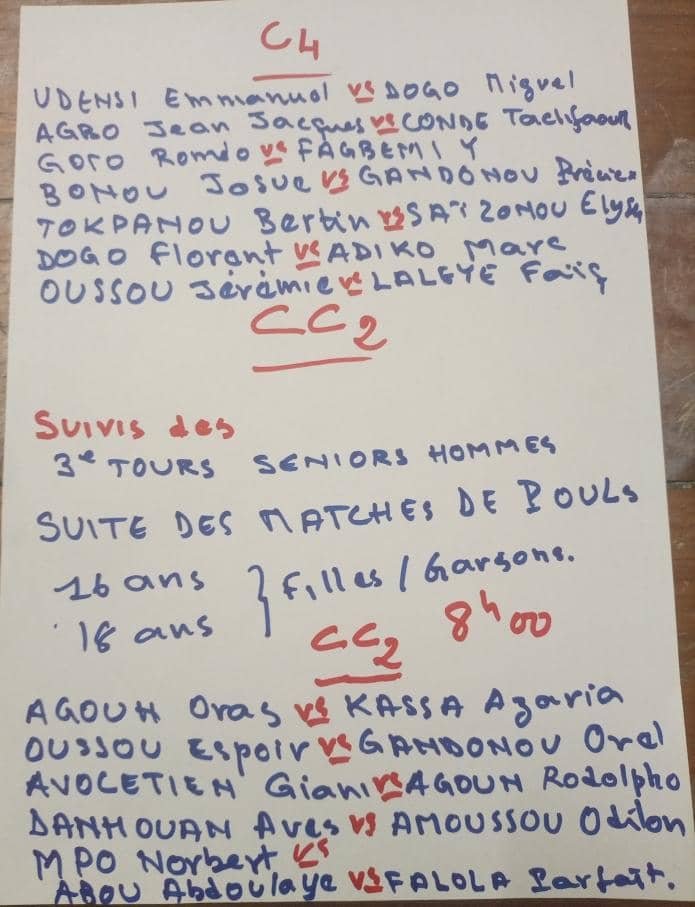 C4
UDENSI Emmanuel vs DOGO Miguel
AGRO Jean Jacques vs CONDE
GOTO Roméo vs FAGBEMI Y
BONOU Josue vs GANDONOU
TOKPANOU Bertin vs SAÏZONOU Elysé
DOGO Florant vs ADIKO Marc
OUSSOU Jérémie vs LALEYE Faïç
CC2
Suivis des
3e TOURS SENIORS HOMMES
SUITE DES MATCHES DE POULS
16 ans } Filles / Garsons.
18 ans
CC2 8h00
AGOUH Oras vs KASSA Azaria
OUSSOU Espoir vs GANDONOU Orel
AVOCETIEN Giani vs AGOUN Rodolpho
DANHOUAN Aves vs AMOUSSOU Odilon
MPO Norbert vs
ABOU Abdoulaye vs FALOLA Parfait.